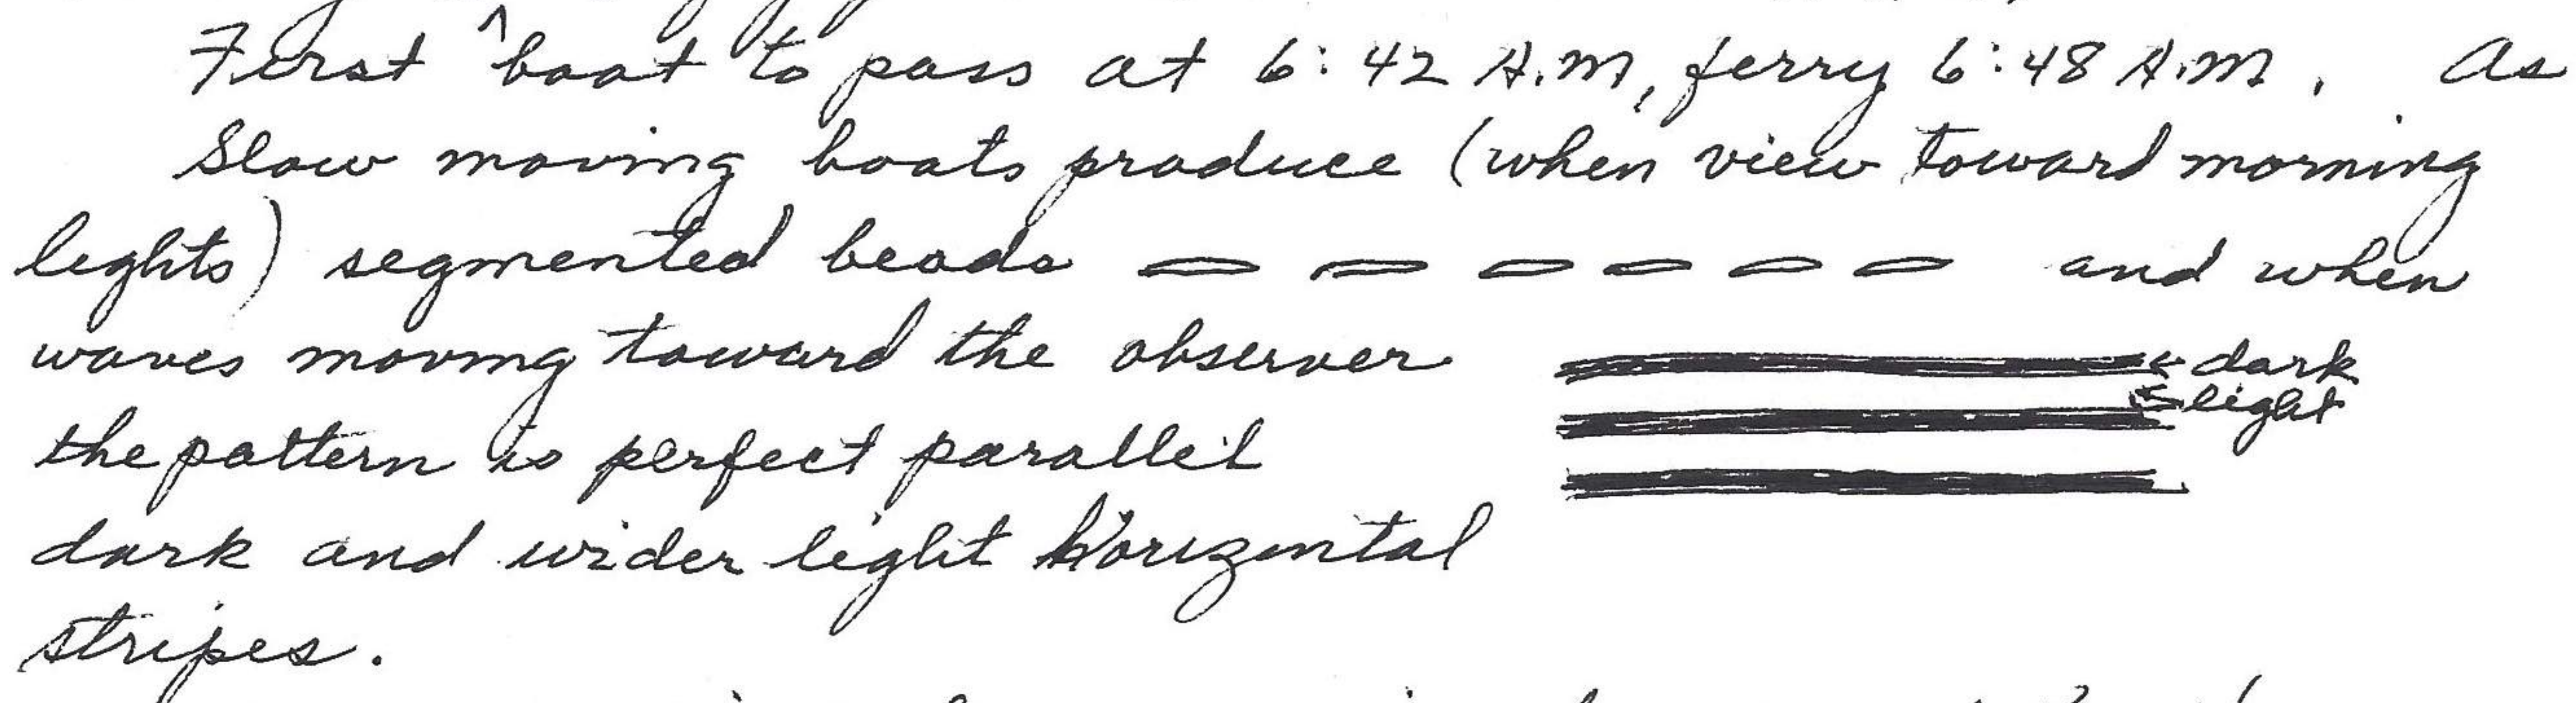 First ^ boat to pass at 6:42 A.M, ferry 6:48 A.M. As
Slow moving boats produce (when view toward morning
lights) segmented beads and when
waves moving toward the observer
dark
light
the pattern is perfect parallel
dark and wider light horizontal
stripes.